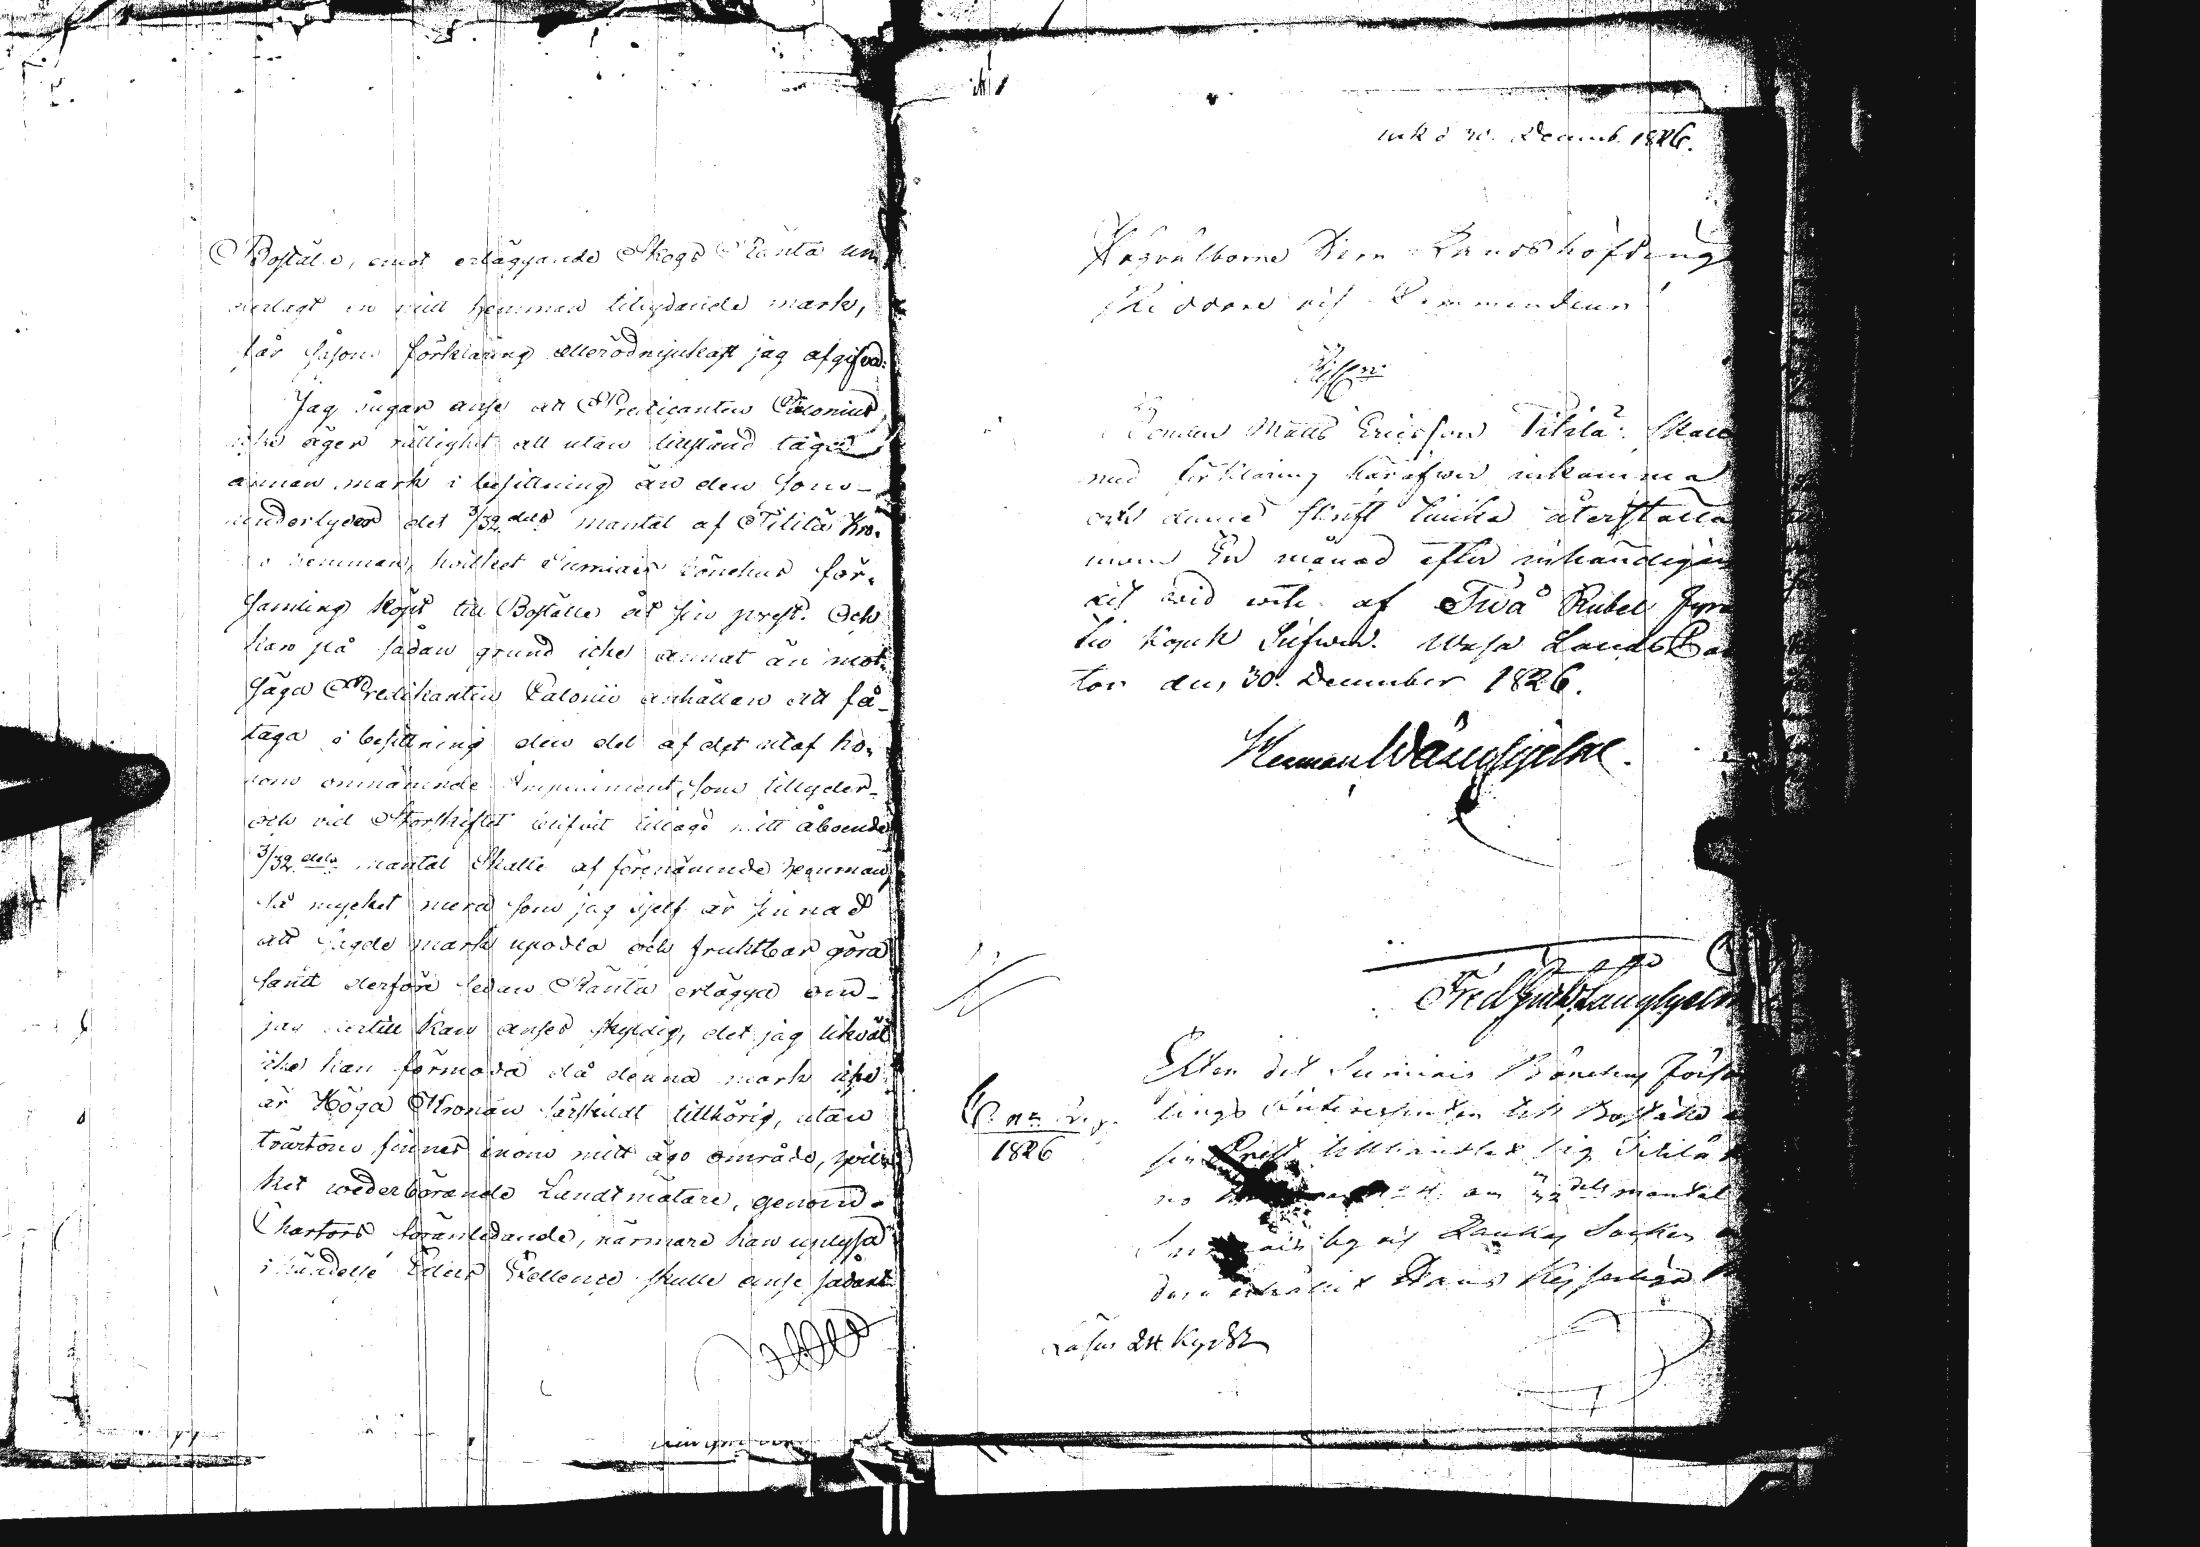 Boställe, emot erläggande Skogs Ränta un
derlagt en mitt hemman tilydande mark,
får såsom förklaring allerödmjukast jag afgifva:
Jag vågar anse att Predicanten Calonius
icke äger rättighet att utan tillstånd taga
annan mark i besittning än den som-
underlyder det 3/32 dels mantal af Titilä Kro-
no hemman, hvilket Sumiais Bönehus för-
samling köpt till Boställe åt sin prest. Och
kan på sådan grund icke annat än mot-
säga Predikanten Calonii anhållan att få-
taga i besittning den del af det utaf ho-
nom omnämnde Impediment, som tillyder-
och vid Storskiftet blifvit tillagd mitt åboende
3/32 dels mantal Skatte af förenämnde hemman
så mycket mera som jag sjelf är sinnad
att sagde mark upodla och fruktbar göra
samt derföre sedan Ränta erlägga om-
jag dertill kan anses skyldig, det jag likväl
icke kan förmoda då denna mark icke
är Höga Kronan särskildt tillhörig, utan
tvärtom finnes inom mitt ägo område, hvil-
ket wederbörande Landtmätare, genom-
Chartors föranledande, närmare kan upplysa
i händelse Eders Excellence skulle anse sådant
ink d 30. Decemb. 1826.
Högvälborne Herr Landshöfding
Riddare och Commendeur!
Res:n
Bonden Matts Ericsson Titilä: Skall
med förklaring häröfwer inkomma
och denne skrift tillika återställa
inom En månad efter inhändigan
och wid wite af Twå Rubel fyra
tio Kopek Silfwer. Wasa Lands Can
tor den 30. December 1826.
Herman Wärnhjelm.
Fred Langhjelm
Efter det Sumiais Bönehus Försam
lings Intressenter till Boställe
1826
sin Prest tillhandlat sig Titilä
no om 3/32 dels mantal
by och Laukas Socken
Hans Kejserliga